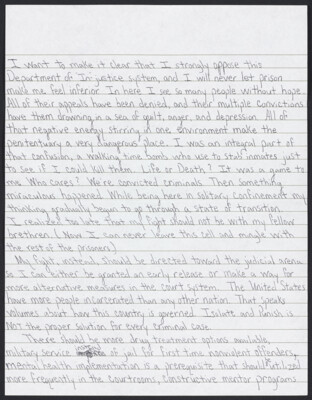 I want to make it clear that I strongly oppose this
Department of In-justice system, and I will never let prison
make me feel inferior. In here I see so many people without hope.
All of their appeals have been denied, and their multiple convictions
have them drowning in a sea of guilt, anger, and depression. All of
that negative energy stirring in one environment make the
penitentuary a very dangerous place. I was an integral part of
that confusion, a walking time bomb who use to stab inmates just
to see if I could kill them. Life or Death? It was a game to
me. Who cares? We're convicted criminals. Then something
miraculous happened. While being here in solitary confinement my
thinking gradually begun to go through a state of transition.
I realized too late that my fight should not be with my fellow
brethren. (Now I can never leave this cell and mingle with
the rest of the prisoners)
My fight, instead, should be directed toward the judicial arena
so I can either be granted an early release or make a way for
more alternative measures in the court system. The United States
have more people incarcerated than any other nation. That speaks
volumes about how this country is governed. Isolate and punish is
NOT the proper solution for every criminal case.
There should be more drug treatment options available,
military service instead of jail for first time nonviolent offenders,
mental health implementation is a prerequisite that should utilized
more frequently in the courtrooms, constructive mentor programs